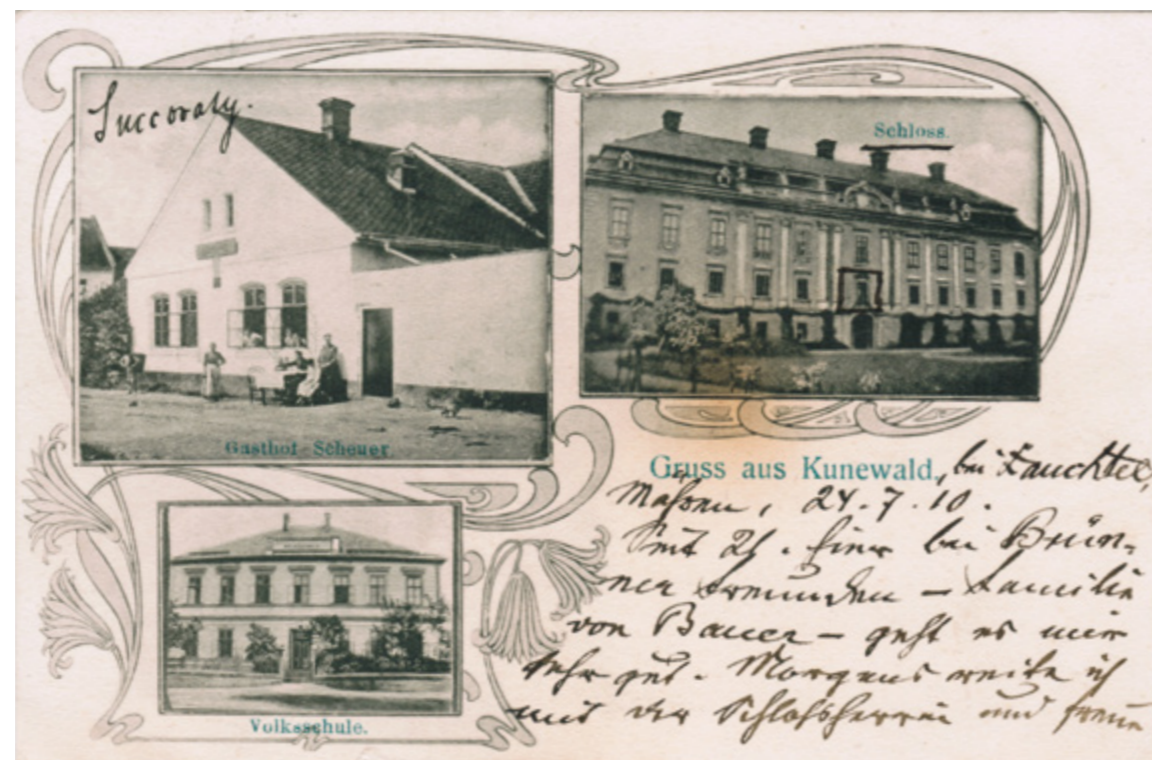 Schloss.
Gasthof Scheuer
Gruss aus Kunewald, bei Zauchtel,
Mähren, 24.7.10.
Seit 21. hier bei Brün-
ner Freunden – Familie
von Bauer – geht es mir
sehr gut. Morgens reite ich
mit der Schlossherrin und freue
Volksschule.